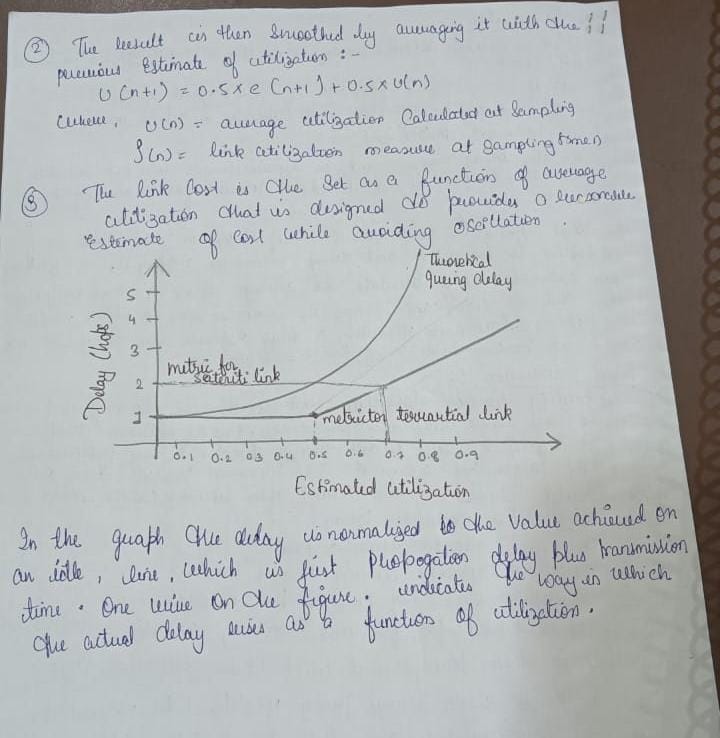 ② The result is then Smoothed by averaging it with the
previous Estimate of utilization :-
U(n+1) = 0.5 x e (n+1) + 0.5 x U(n)
where, U(n) = average utilization Calculated at Sampling
S(n) = link utilization measure at Sampling time n
③ The link Cost is the Set as a function of average
utilization that is designed to provides a
Estimate of Cost while avoiding oscillation.
Theoretical
queing delay
Delay (hops)
5
4
3
2
1
metric for
link
metric for link
0.1 0.2 0.3 0.4 0.5 0.6 0.7 0.8 0.9
Estimated utilization
In the graph the delay is normalized to the value achieved on
an idle, line, which is just Propogation delay plus transmission
time. One line on the figure. indicates the way in which
the actual delay rises as a function of utilization.